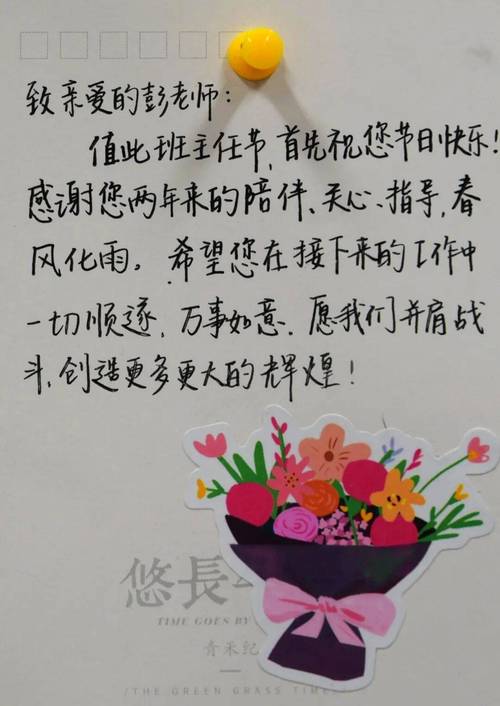 致亲爱的彭老师：
值此班主任节，首先祝您节日快乐！
感谢您两年来的陪伴、关心、指导，春
风化雨。希望您在接下来的工作中
一切顺遂，万事如意，愿我们并肩战
斗，创造更多更大的辉煌！
悠長
TIME GOES BY
青禾纪
/THE GREEN GRASS TIMES